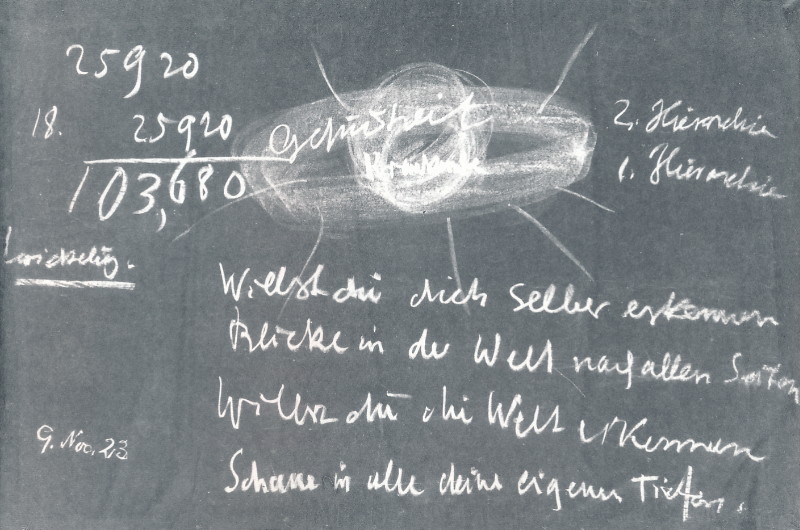 25920
18. 25920
103,680
2. Hierarchie
1. Hierarchie
Willst du dich selber erkennen
Blicke in der Welt nach allen Seiten
Willst du die Welt erkennen
Schaue in alle deine eigenen Tiefen.
9. Nov. 23